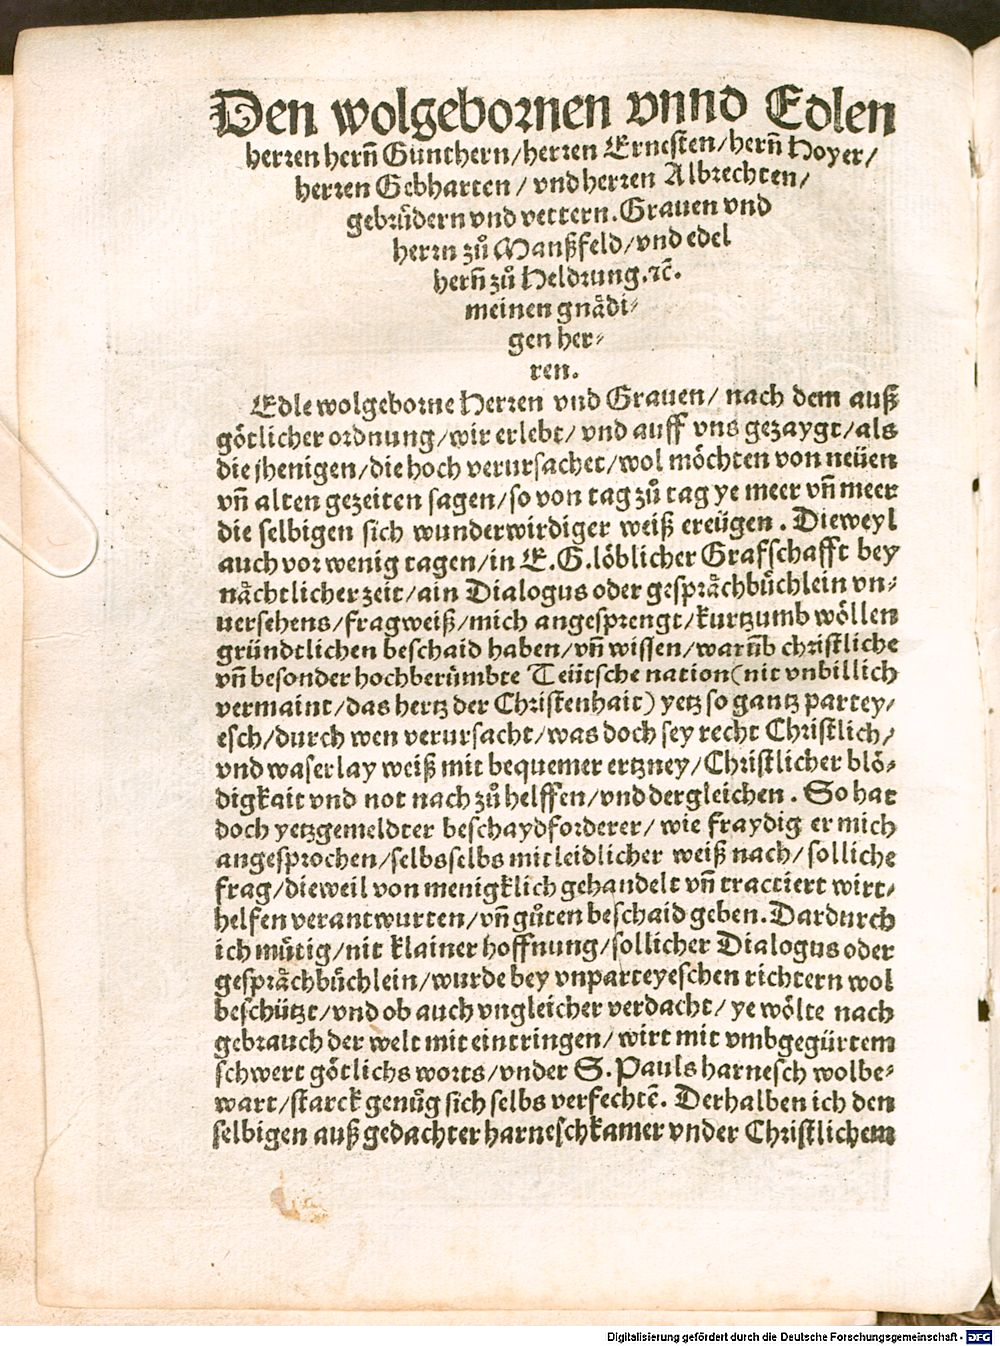 Den wolgebornen vnnd Edlen
herren hern̄ Gunthern/herren Ernesten/hern̄ Hoyer/
herren Gebharten / vnd herren Albrechten/
gebruͤdern vnd vettern. Grauen vnd
herrn zů Manßfeld/vnd edel
hern̄ zů Heldrung.ꝛc̄.
meinen gnaͤdi⸗
gen her⸗
ren.
Edle wolgeborne Herren vnd Grauen/ nach dem auß
goͤtlicher ordnung/wir erlebt/ vnd auff vns gezaygt/als
die jhenigen/die hoch verursachet/wol moͤchten von neüen
vn̄ alten gezeiten sagen/so von tag zů tag ye meer vn̄ meer
die selbigen sich wunderwirdiger weiß ereügen . Dieweyl
auch vor wenig tagen/in E.G.loͤblicher Grafschafft bey
naͤchtlicher zeit/ain Dialogus oder gespraͤchbuͤchlein vn⸗
uersehens/fragweiß/mich angesprengt/kurtzumb woͤllen
gründtlichen beschaid haben/vn̄ wissen/warūb christliche
vn̄ besonder hochberuͤmbte Teütsche nation(nit vnbillich
vermaint/das hertz der Christenhait) yetz so gantz partey/
esch/durch wen verursacht/was doch sey recht Christlich/
vnd waserlay weiß mit bequemer ertzney/Christlicher bloͤ⸗
digkait vnd not nach zů helffen/vnd dergleichen . So hat
doch yetzgemeldter beschaydforderer/ wie fraydig er mich
angesprochen/selbsselbs mitleidlicher weiß nach/ solliche
frag/dieweil von menigklich gehandelt vn̄ tractiert wirt⸗
helfen verantwurten/vn̄ gůten beschaid geben. Dardurch
ich muͤtig/nit klainer hoffnung/sollicher Dialogus oder
gespraͤchbuͤchlein/wurde bey vnparteyeschen richtern wol
beschützt/vnd ob auch vngleicher verdacht/ ye woͤlte nach
gebrauch der welt mit eintringen/ wirt mit vmbgegürtem
schwert goͤtlichs worts/vnder S. Pauls harnesch wolbe⸗
wart/starck genůg sich selbs verfechtē. Derhalben ich den
selbigen auß gedachter harneschkamer vnder Christlichem
Digitalisierung gefördert durch die Deutsche Forschungsgemeinschaft - DFG